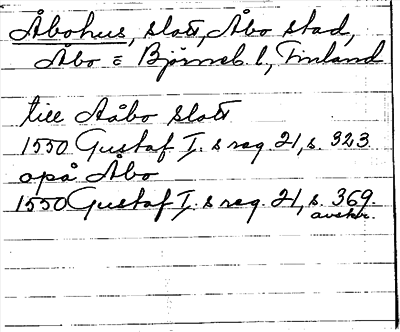 Åbohus, slott, Åbo stad,
Åbo = Björneb. l, Finland
till Aåbo slott
1550 Gustaf I:s reg. 21, s. 323
opå Åbo
1550 Gustaf I:s reg. 21, s. 369.
avskr.